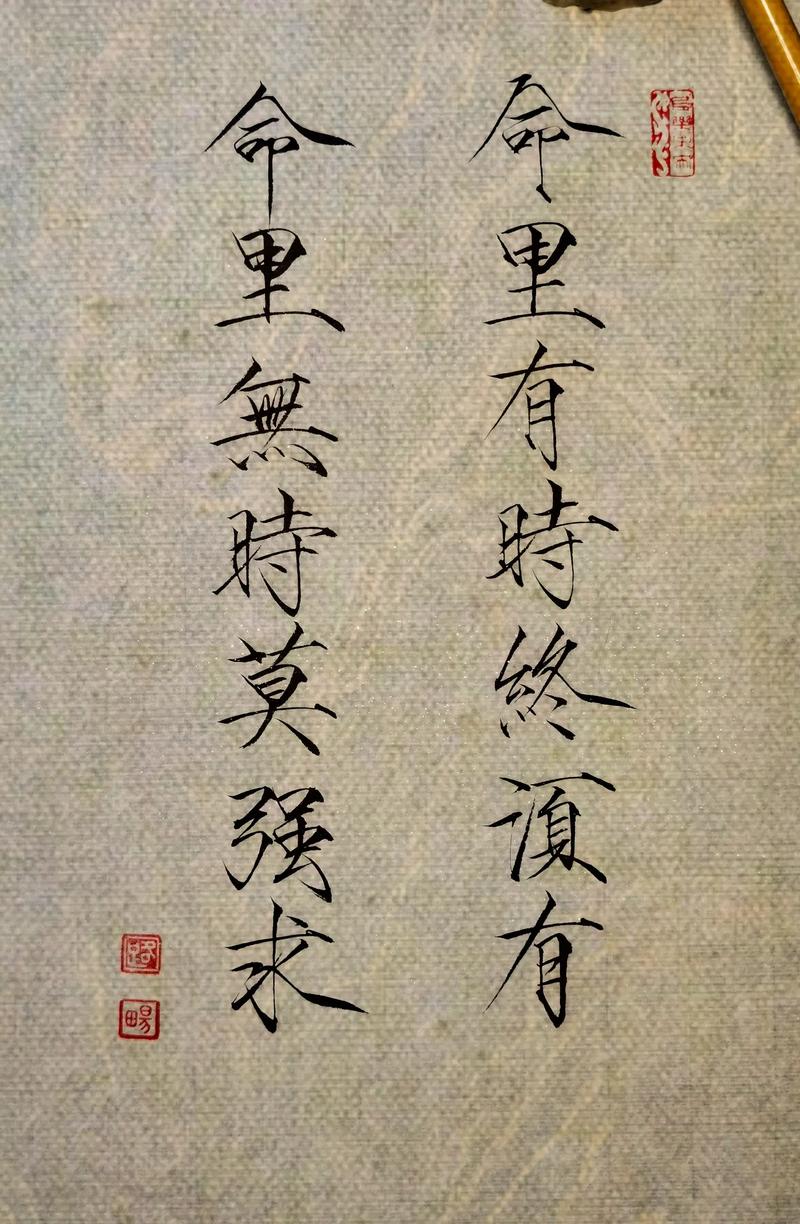 命里有時終須有
命里無時莫强求
路
畼